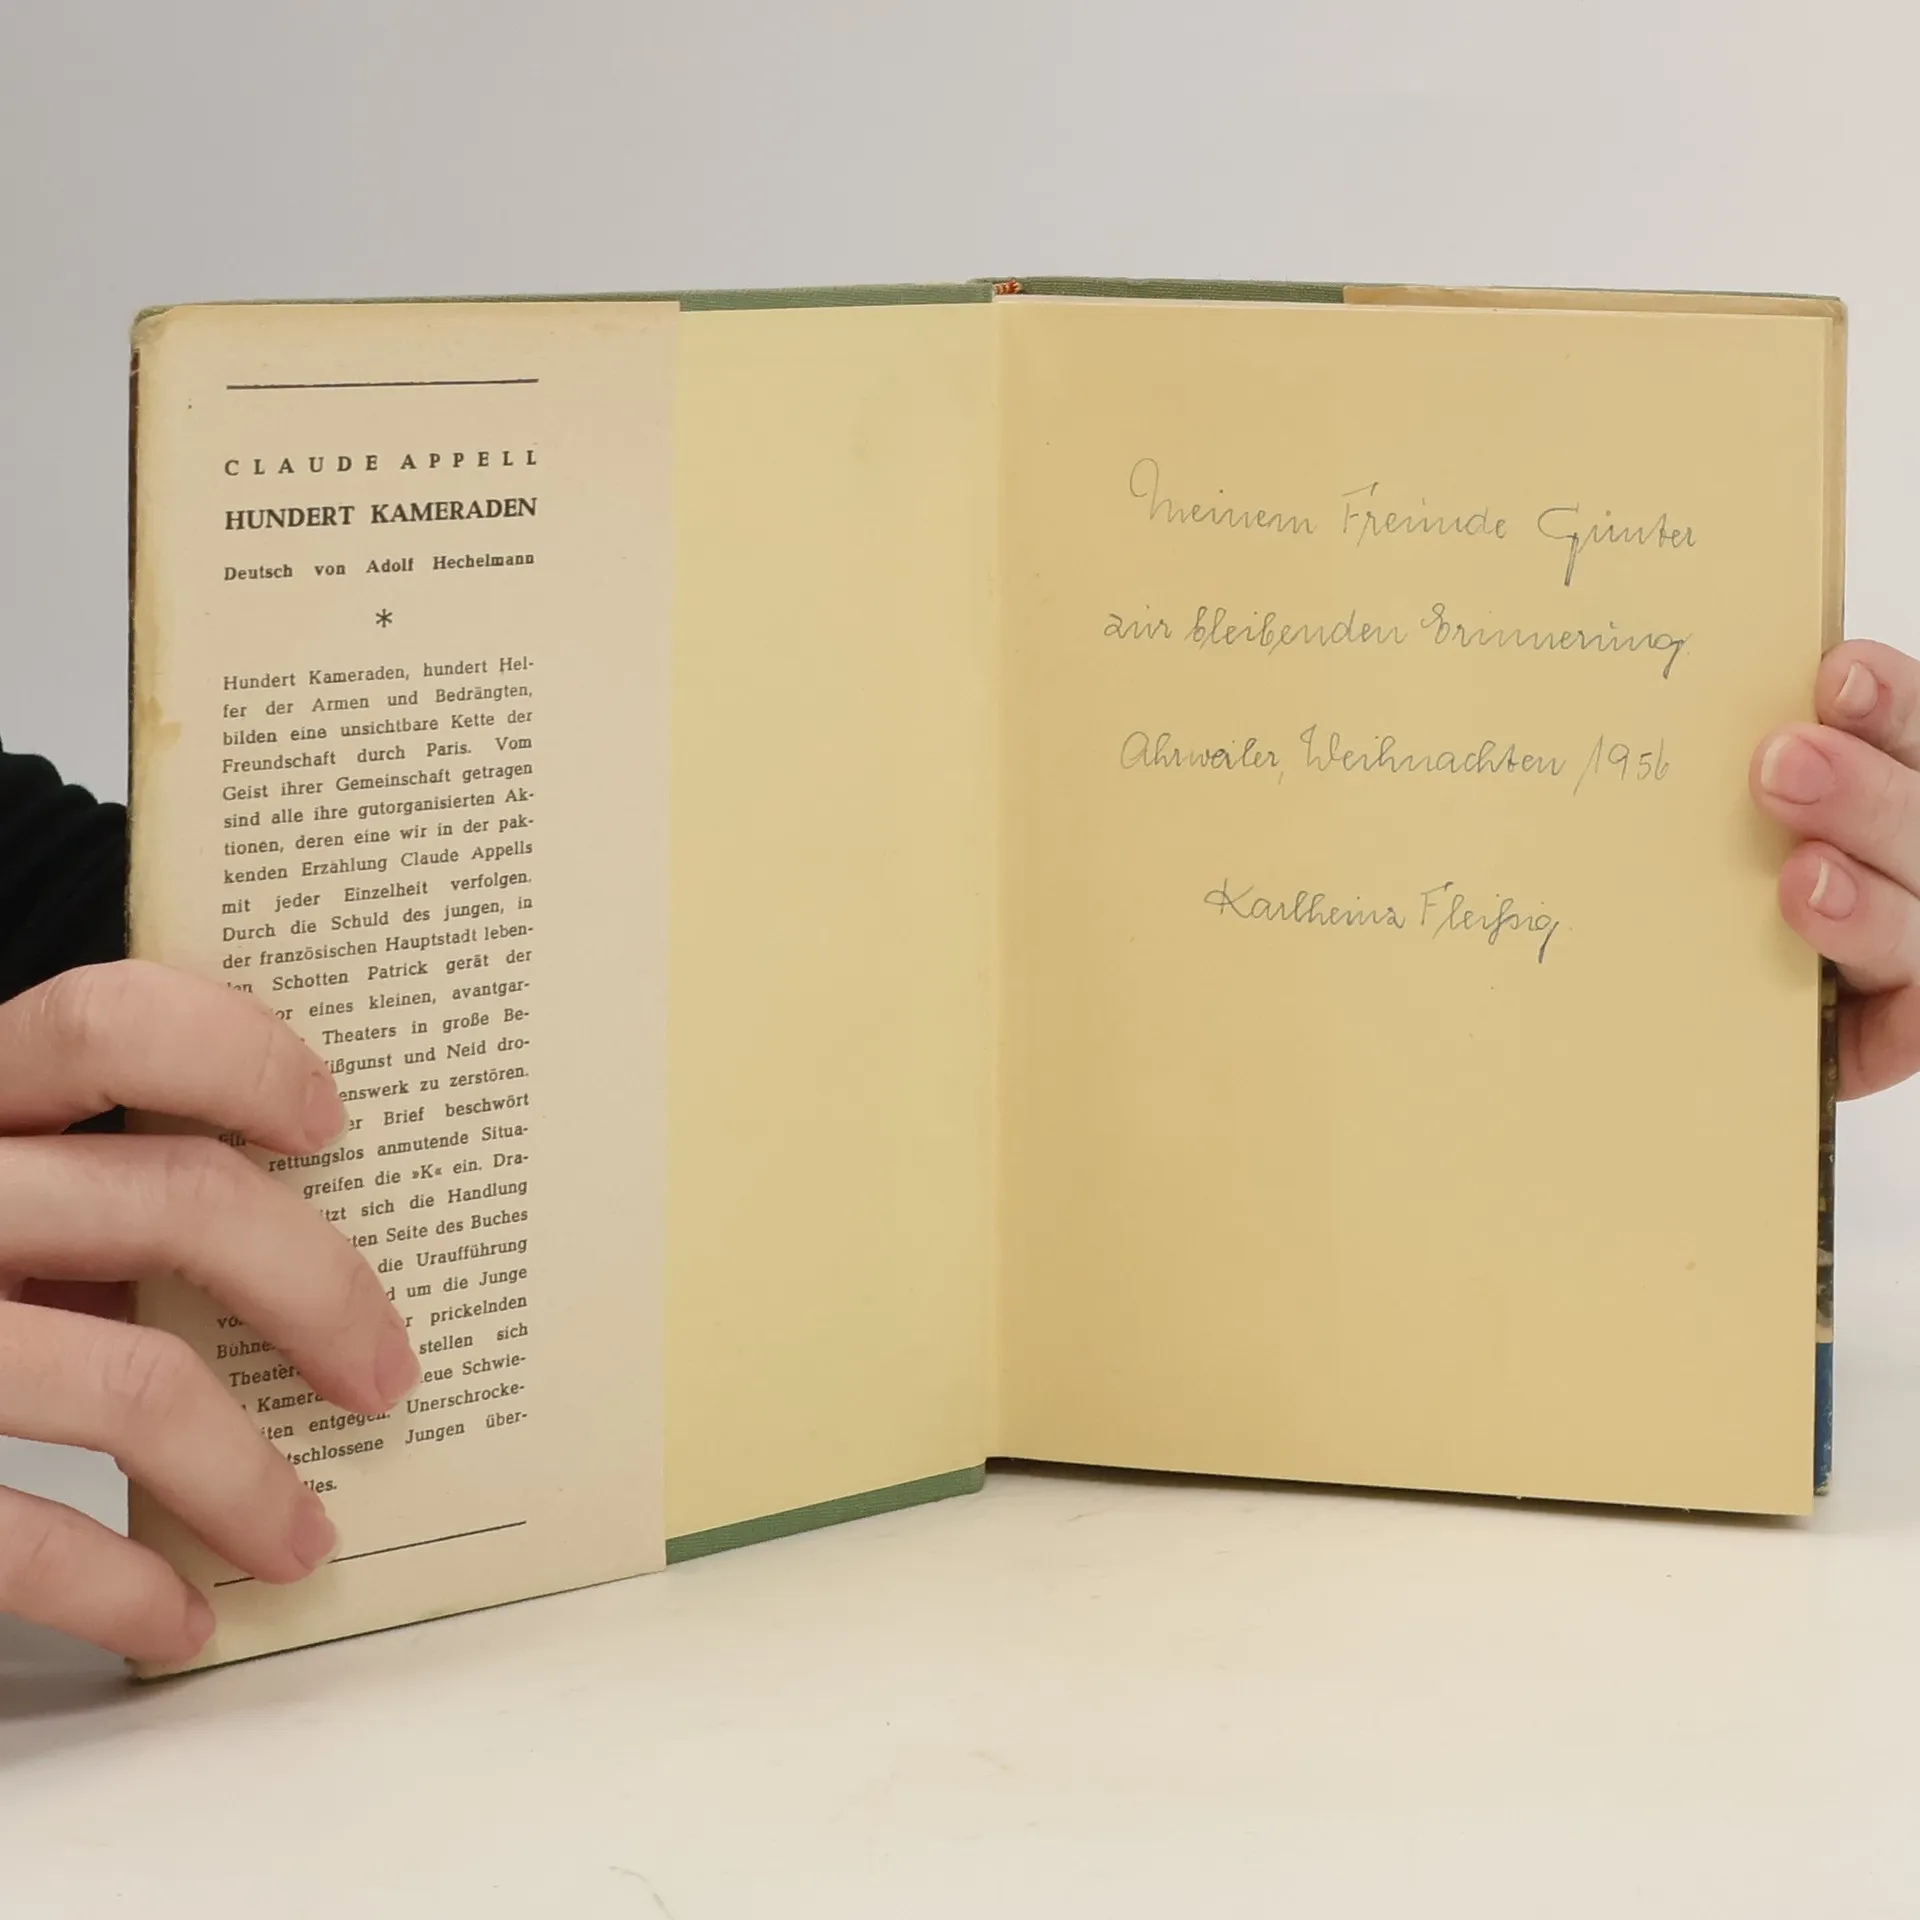 CLAUDE APPELL
HUNDERT KAMERADEN
Deutsch von Adolf Hechelmann
*
Hundert Kameraden, hundert Hel-
fer der Armen und Bedrängten,
bilden eine unsichtbare Kette der
Freundschaft durch Paris. Vom
Geist ihrer Gemeinschaft getragen
sind alle ihre gutorganisierten Ak-
tionen, deren eine wir in der pak-
kenden Erzählung Claude Appells
mit jeder Einzelheit verfolgen.
Durch die Schuld des jungen, in
der französischen Hauptstadt leben-
Schotten Patrick gerät der
eines kleinen, avantgar-
Theaters in große Be-
und Neid dro-
zu zerstören.
Brief beschwört
rettungslos anmutende Situa-
greifen die »K« ein. Dra-
sich die Handlung
Seite des Buches
die Uraufführung
um die Junge
prickelnden
stellen sich
Schwie-
entgegen. Unerschrocke-
Jungen über-
Meinem Freunde Günter
zur bleibenden Erinnerung.
Ahrweiler, Weihnachten 1956
Karlheinz Fleißig.